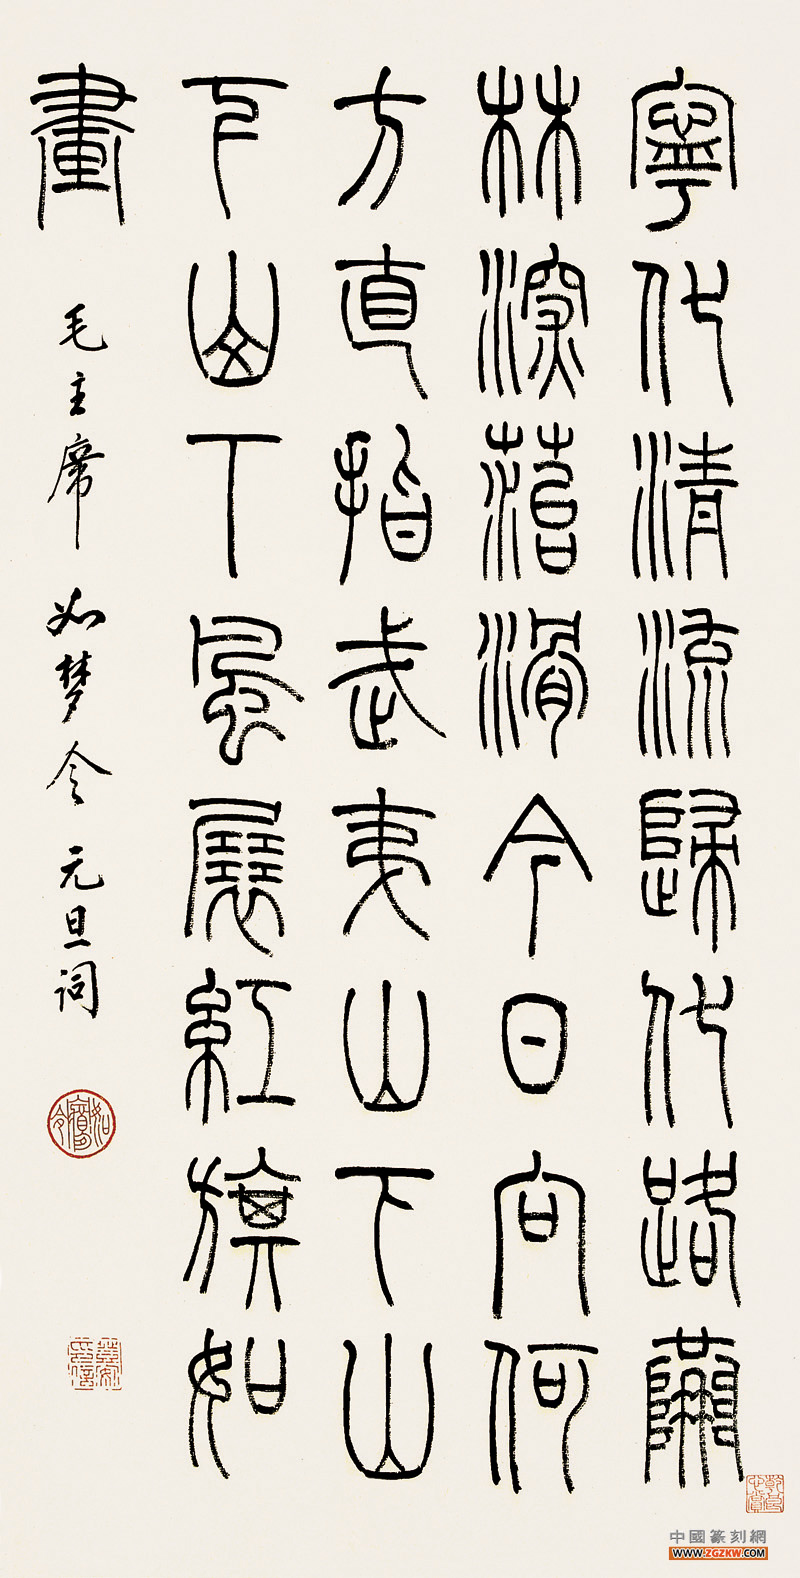 寧化清流歸化路隘
林深菭滑今日向何
方直指武夷山下山
下山下風展紅旗如
畫
毛主席如梦令元旦词
如夢令
中國篆刻網
WWW.ZGZKW.COM